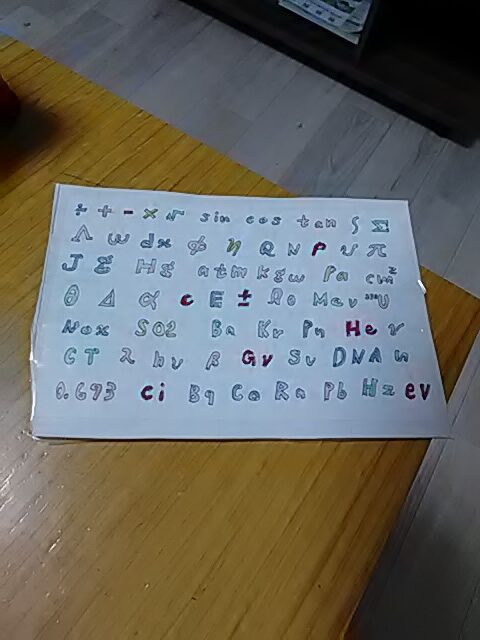 ÷ + - × √ sin cos tan ∫ Σ
Λ ω dx φ η Q N ρ υ π
J g Hg atm kgw Pa cm²
θ Δ α c E ± Ω Mev ²³⁸U
Nox SO2 Ba Kr Pn He ν
CT λ hν β Gy Sv DNA n
0.693 Ci Bq Co Rn Pb Hz eV